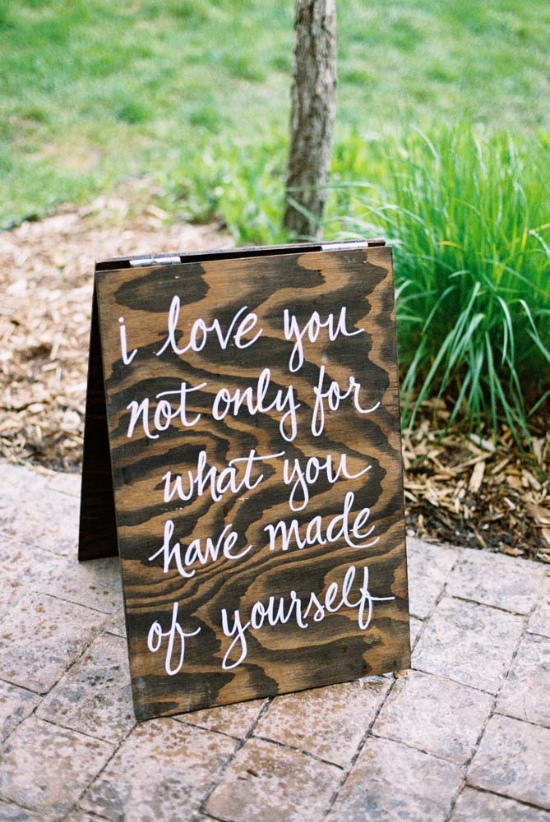 i love you
not only for
what you
have made
of yourself